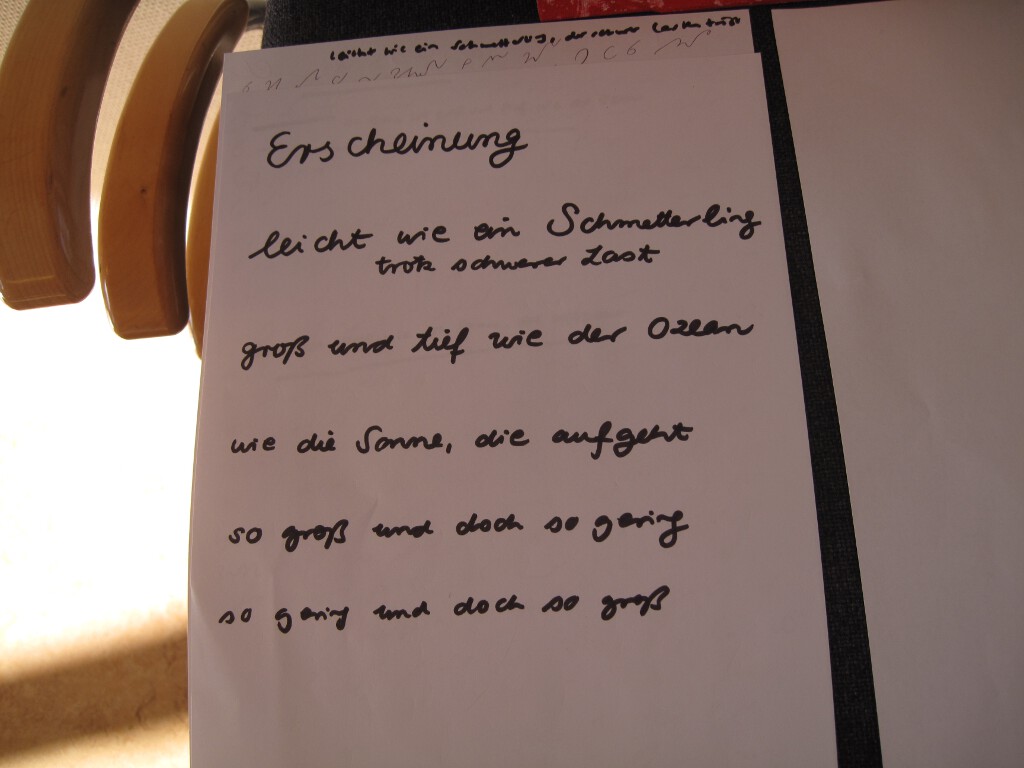 leicht wie ein Schmetterling, der schwere Lasten trägt
Erscheinung
leicht wie ein Schmetterling
trotz schwerer Last
groß und tief wie der Ozean
wie die Sonne, die aufgeht
so groß und doch so gering
so gering und doch so groß